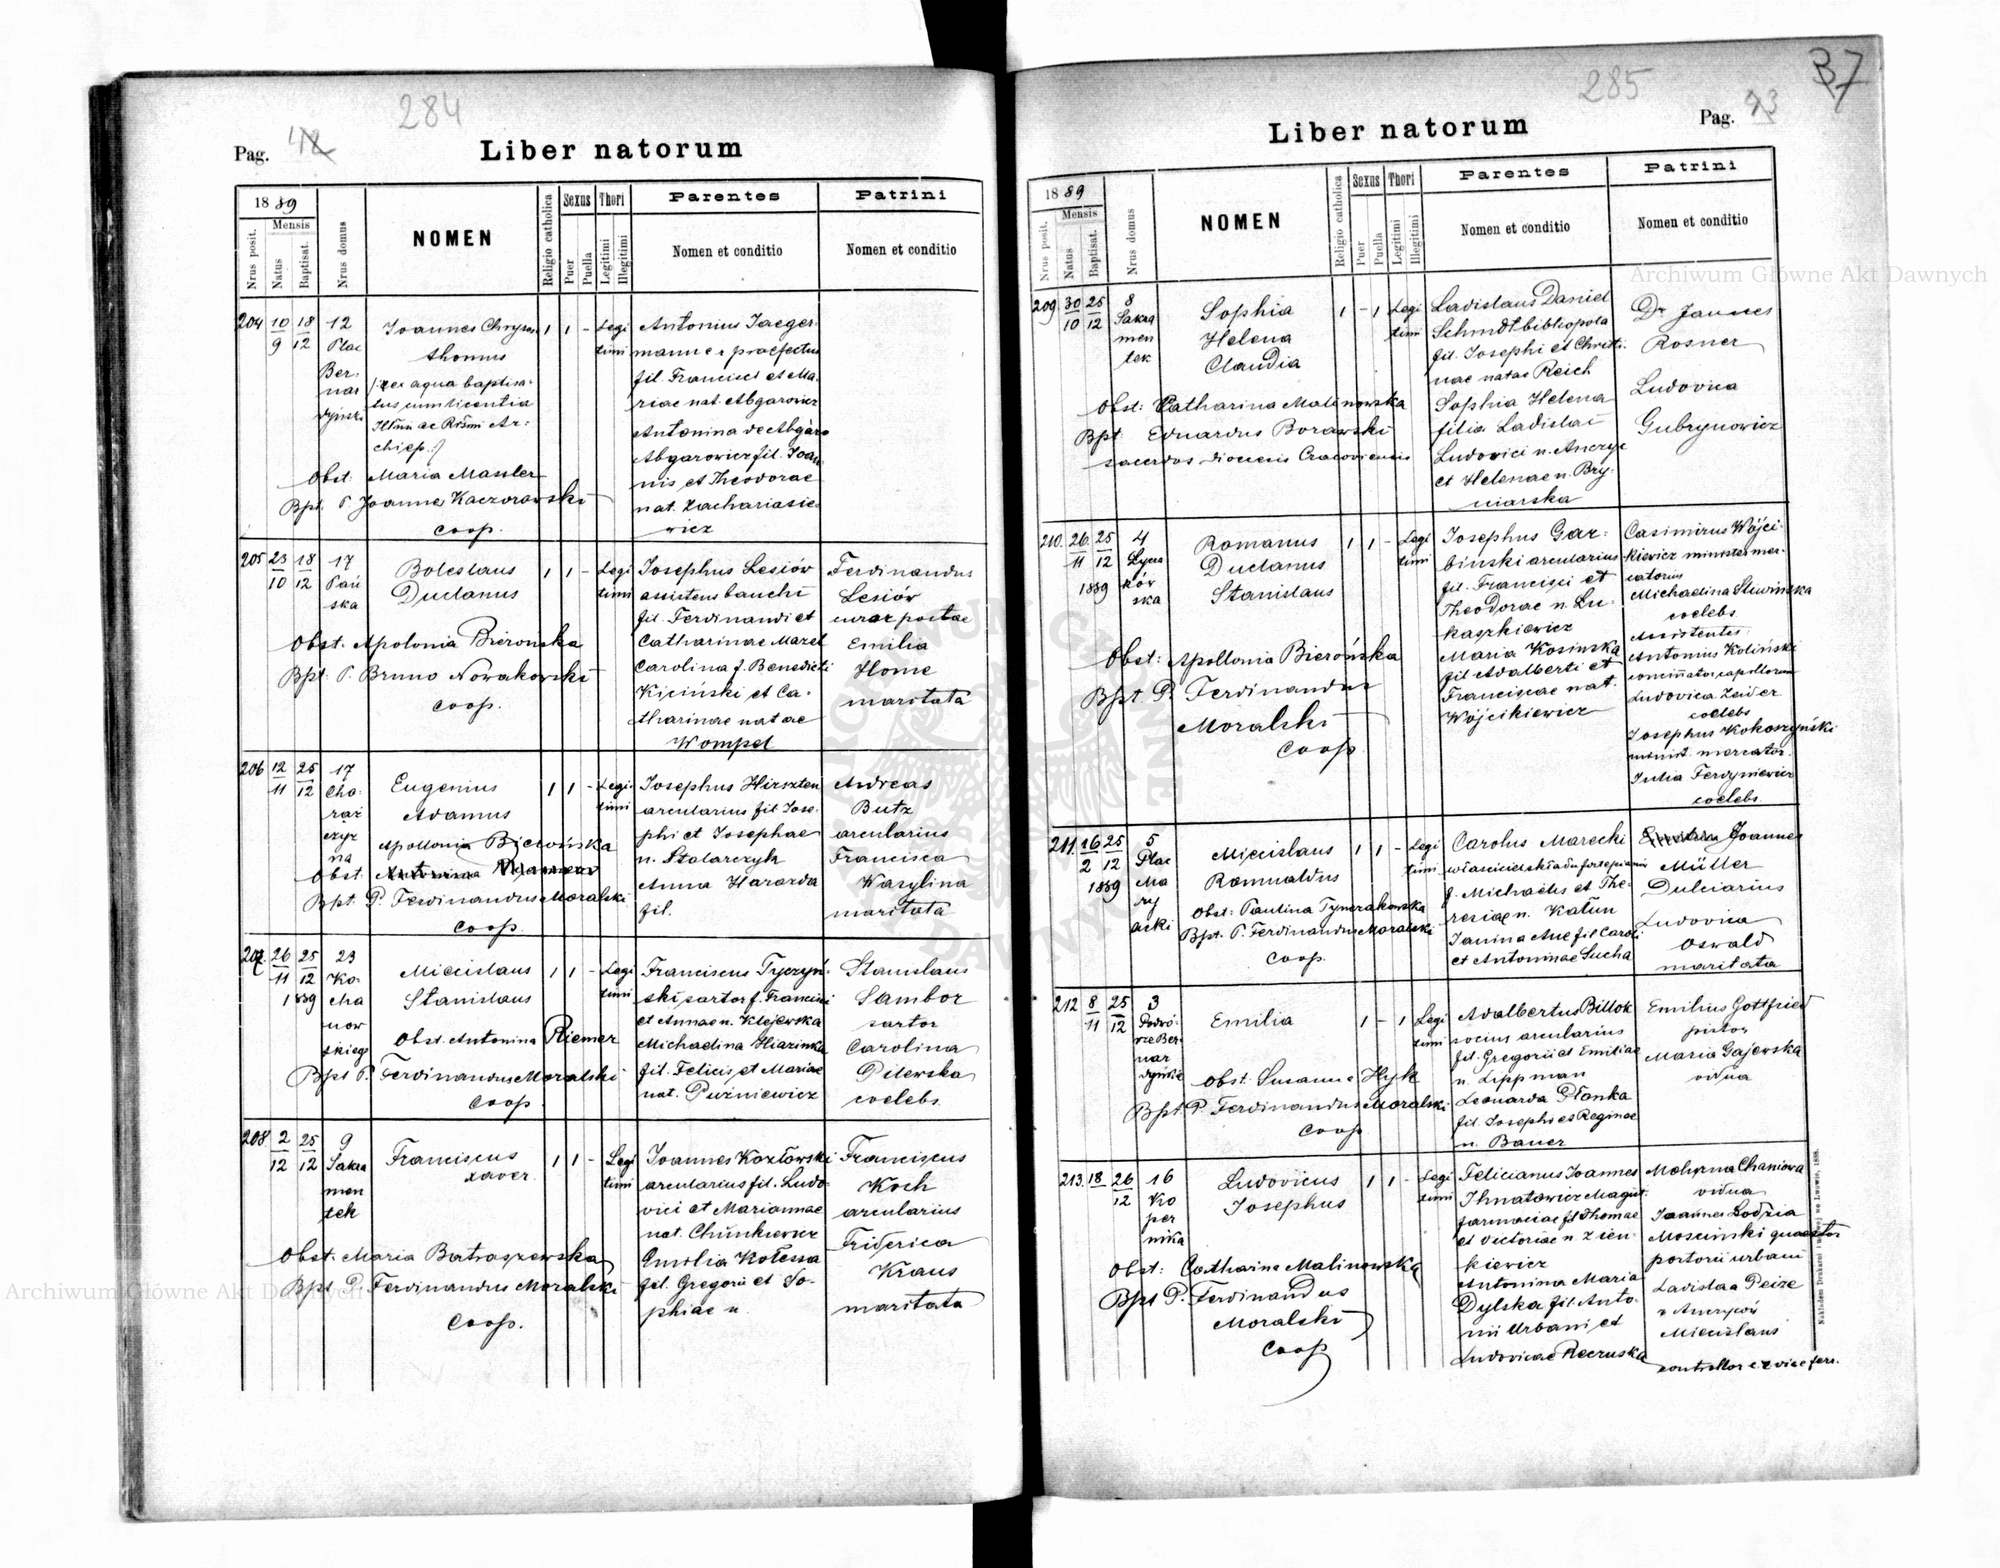 284
Pag. 42
Liber natorum
1889
Nrus posit.
Mensis
Natus
Baptisat.
Nrus domus
NOMEN
Religio catholica
Sexus
Puer
Puella
Thori
Legitimi
Illegitimi
Parentes
Nomen et conditio
Patrini
Nomen et conditio
204 10/9 18/12 12 Plac Ber-nar
Joannes Chrysos-
thomus
(ex aqua baptisa-
tus cum licentia
chiep.)
Obst. Maria Massler
Bpt. P. Joannes Kaczorowski
coop.
1 1 - Legi
timi
Antonius Jaeger
mann praefectus
fil. Francisci et Ma-
riae nat. Abgarowicz
Antonina de Abgaro
Abgarowicz fil. Joan
nis et Theodorae
nat. Zachariasie-
wicz
205 23/10 18/12 17 Pań
ska
Boleslaus
Duclanus
Obst. Apolonia Bierońska
Bpt. P. Bruno Nowakowski
coop.
1 1 - Legi
timi
Josephus Lesiów
assistens banchi
fil. Ferdinandi et
Catharinae Mazet
Carolina f. Benedicti
Kiciński et Ca-
tharinae natae
Wompel
Ferdinandus
Lesiów
Emilia
Home
maritata
206 12/11 25/12 17
Cho-
rąż
czyz
na
Eugenius
Adamus
Apollonia Bierońska
Obst. Antonina
Bpt. P. Ferdinandus Moralski
coop.
1 1 - Legi-
timi
Josephus Hirszten
arcularius fil. Jose-
phi et Josephae
n. Stolarczyk
Anna Hararda
fil.
Andreas
Butz
arcularius
Francisca
Wasylina
maritata
207 26/11 25/12 23
1889
Ko-
cha
now
skiego
Miecislaus
Stanislaus
Obst. Antonina Riemer
Bpt P. Ferdinandus Moralski
coop
1 1 - Legi
timi
Franciscus Tyczyń-
ski sartor f. Francisci
et Annae n. Klejewska
Michaelina Hiazinka
fil. Felicis et Mariae
nat. Puźniewicz
Stanislaus
Sambor
sartor
Carolina
Pilewska
coelebs.
208 2/12 25/12 9
Sakra
men
tek
Franciscus
Xaver.
Obst. Maria Batraszewska
Bpt P. Ferdinandus Moralski
Coop.
1 1 - Legi
timi
Joannes Kozłowski
arcularius fil. Ludo-
vici et Mariannae
nat. Chunkiewicz
Emilia Kolessa
fil. Gregorii et So-
phiae n.
Franciscus
Koch
arcularius
Friderica
Kraus
maritata
285
37
Pag. 43
Liber natorum
1889
Nrus posit.
Mensis
Natus
Baptisat.
Nrus domus
NOMEN
Religio catholica
Sexus
Puer
Puella
Thori
Legitimi
Illegitimi
Parentes
Nomen et conditio
Patrini
Nomen et conditio
209 30/10 25/12 8
Sakra
men
tek
Sophia
Helena
Claudia
Obst: Catharina Malinowska
Bpt Eduardus Borawski
sacerdos dioecesis Cracoviensis
1 - 1 Legi
timi
Ladislaus Daniel
Schmdt bibliopola
fil. Josephi et Christi-
nae natae Reich
Sophia Helena
filia Ladislai
Ludovici n. Anczyc
et Helenae n. Bry-
niarska
Rosner
Ludovica
Gubrynowicz
210. 26./11 25/12 4
1889
Łycza
ków
ska
Romanus
Duclanus
Stanislaus
Obst: Apollonia Bierońska
Bpt P. Ferdinandus
Moralski
coop
1 1 - Legi
timi
Josephus Gar-
biński arcularius
fil. Francisci et
Theodorae n. Łu-
kaszkiewicz
Maria Kosinska
fil Adalberti et
Franciscae nat.
Wójcikiewicz
Casimirus Wójci-
kiewicz minister mer-
catorius
Michaelina Sliwińska
coelebs
Assistentes
Antonius Koliński
Ludovica Zeider
coelebs
Josephus Kokoszyński
minist. mercator.
Julia Ferdyniewicz
coelebs
211. 16/2 25/12 5
1889
Plac
Ma
ry
acki
Miecislaus
Romualdus
Obst: Paulina Tymrakowska
Bpt. P. Ferdinandus Moralski
coop.
1 1 - Legi
timi
Carolus Marecki
właściciel składu fortepianów
f. Michaelis et The-
resiae n. Katun
Janina Aue fil Caroli
et Antoninae Sucha
Joannes
Müller
Dulciarius
Ludovica
Oswald
maritata
212 8/11 25/12 3
Podwó-
rze Ber-
nar
dyńskie
Emilia
Obst. Susanne Hyk
Bpt P. Ferdinandus Moralski
coop
1 - 1 Legi
timi
Adalbertus Billok
socius arcularius
fil. Gregorii et Emiliae
n. Lippman
Leonarda Płonka
fil. Josephi et Reginae
n. Bauer
Emilius Gottfried
pistor
Maria Gajewska
vidua
213. 18 26/12 16
Ko
per
nika
Ludovicus
Josephus
Obst: Catharine Malinowska
Bpt P. Ferdinandus
Moralski
Coop
1 1 - Legi
timi
Felicianus Joannes
Ihnatowicz Magist.
farmaciae fil Thomae
et Victoriae n Zien-
kiewicz
Antonina Maria
Dylska fil. Anto-
nii Urbani et
Ludovicae Reczuska
vidua
Joannes Łodzia
Mosciński quaestor
portorii urbani
Ladislaa Peize
Miecislaus
Nakładem Drukarni Ludowej we Lwowie, 1888.
Archiwum Główne Akt Dawnych
Archiwum Główne Akt Dawnych
ARCHIWUM GŁÓWNE AKT DAWNYCH